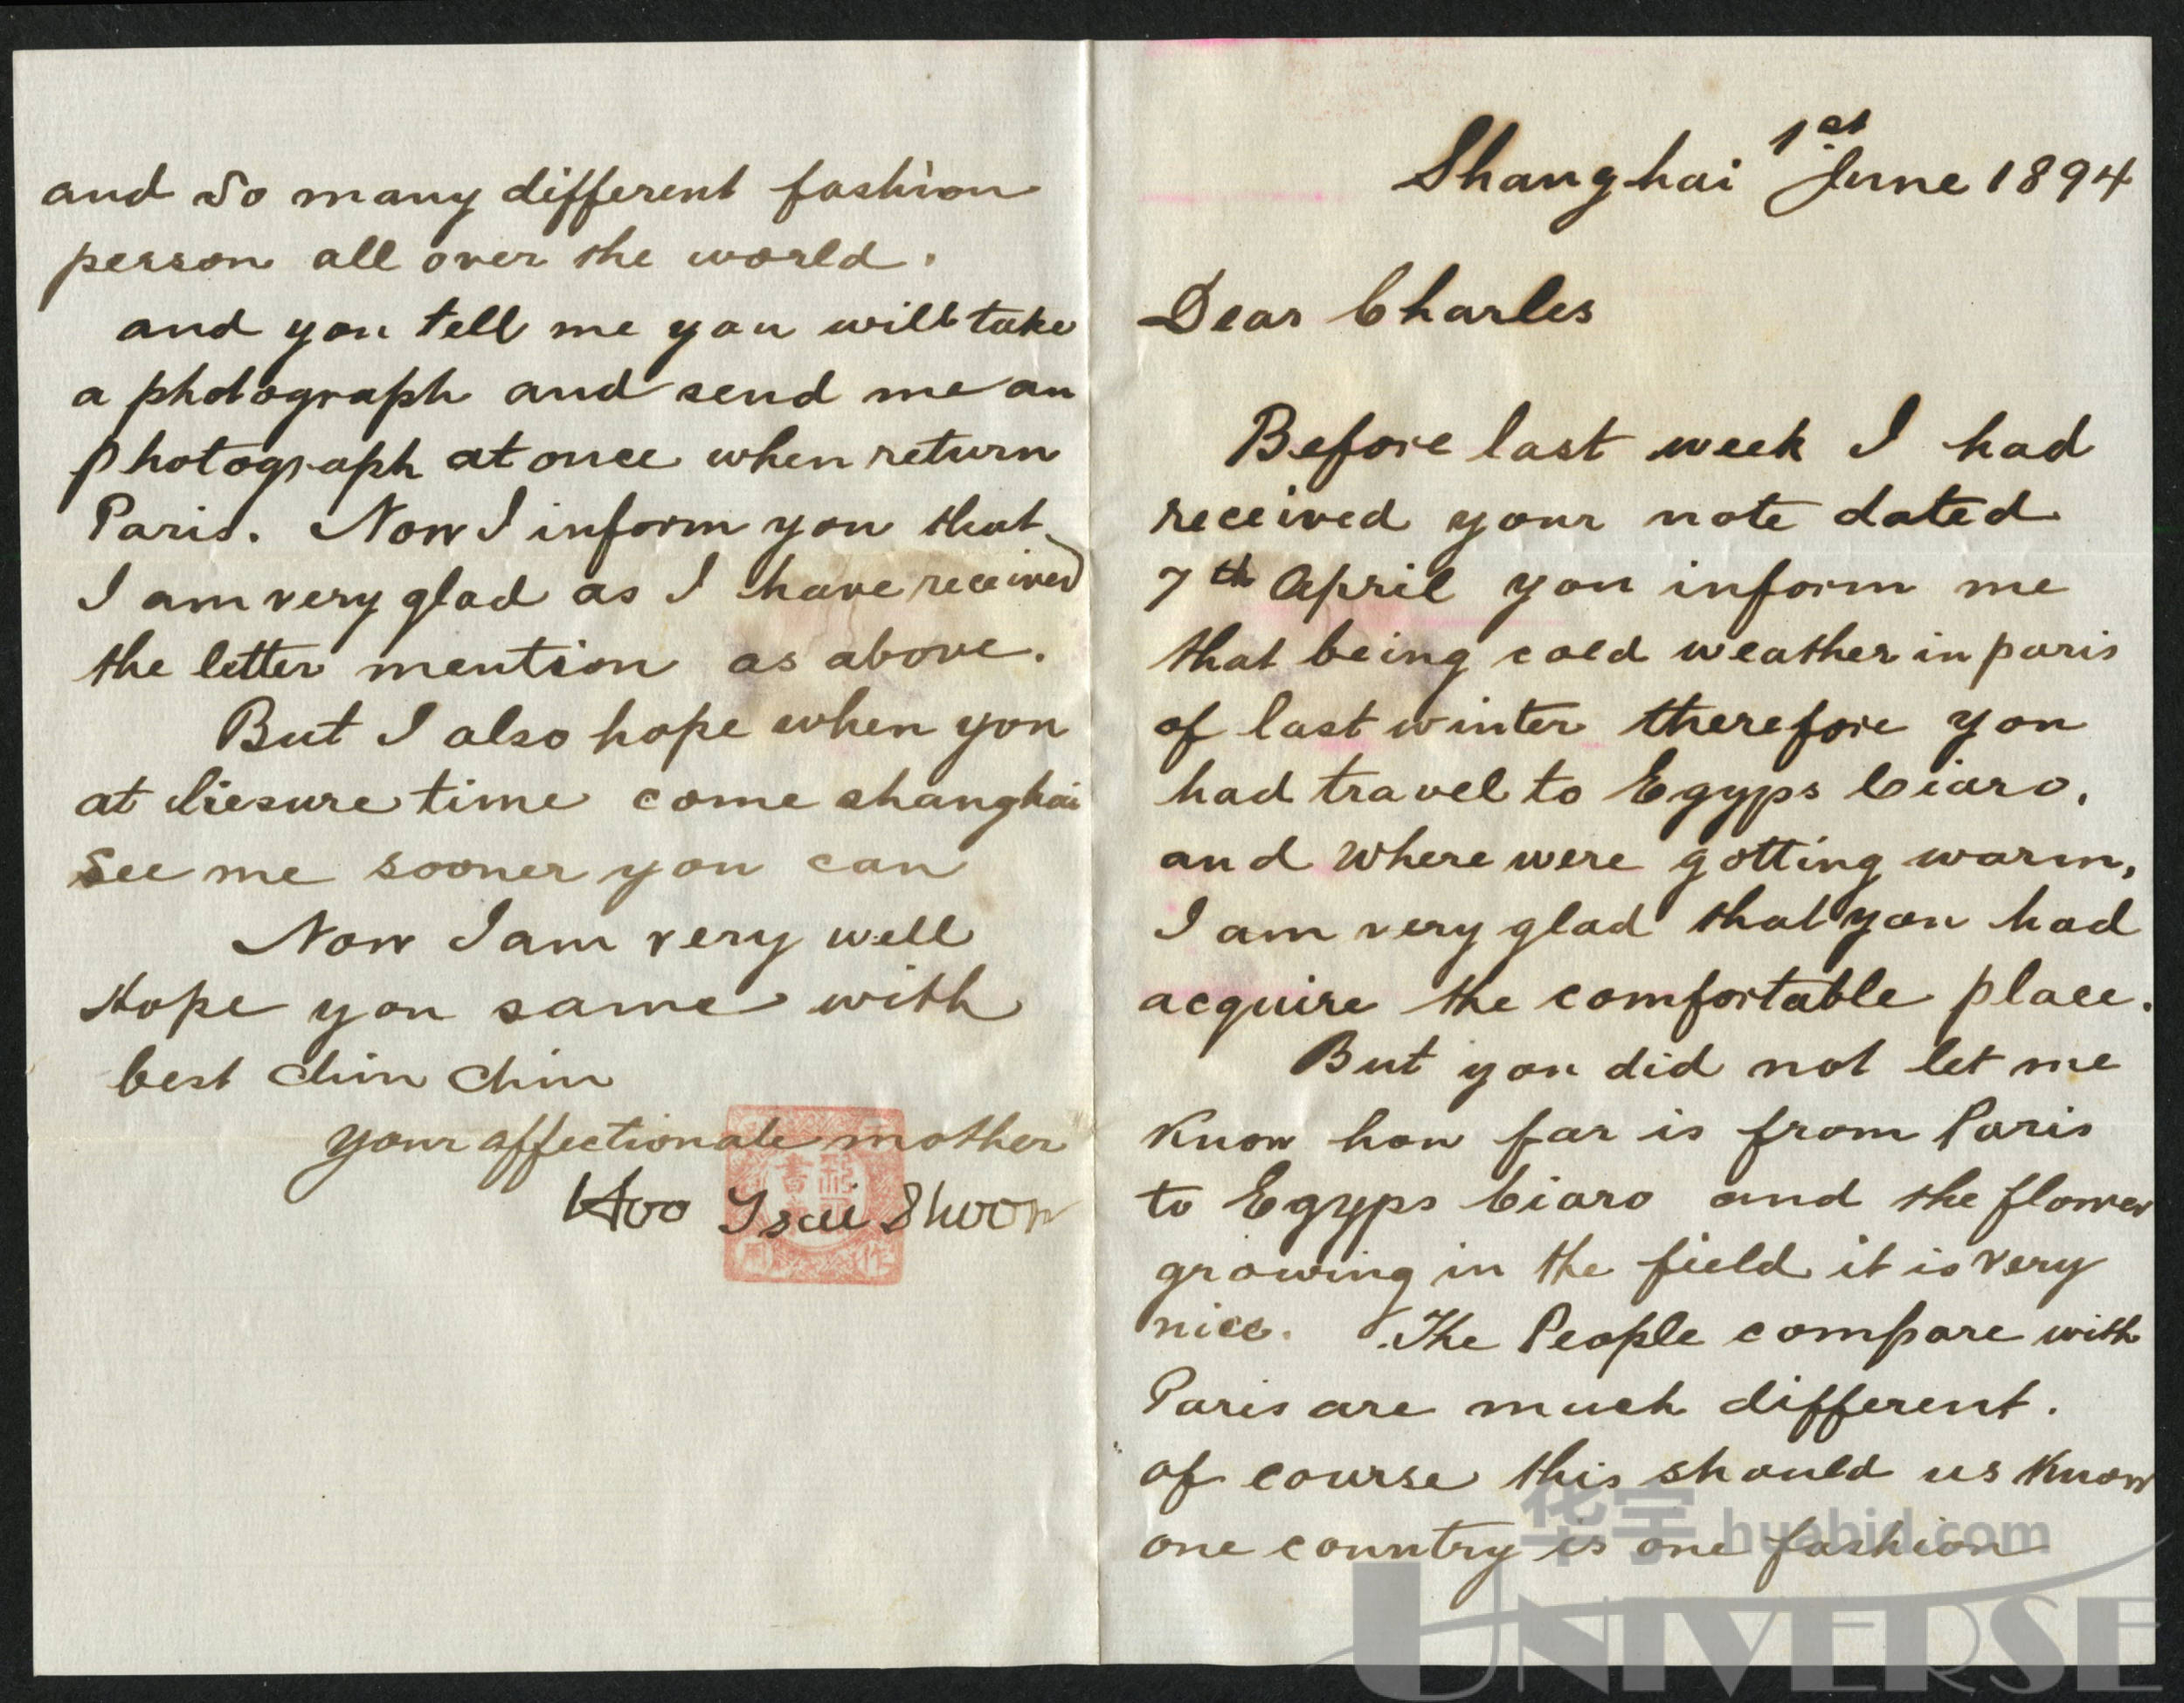 Shanghai 1st June 1894
Dear Charles
Before last week I had
received your note dated
7th April you inform me
that being coed weather in paris
of last winter therefore you
had travel to Egyps Ciaro.
and where were gotting warm,
I am very glad that you had
acquire the comfortable place.
But you did not let me
know how far is from Paris
to Egyps Ciaro and the flower
growing in the field it is very
nice. The People compare with
Paris are much different.
of course this should us know
one country is one fashion
and so many different fashion
person all over the world.
and you tell me you will take
a photograph and send me an
photograph at once when return
Paris. Now I inform you that
I am very glad as I have received
the letter mention as above.
But I also hope when you
at liesure time come shanghai
see me sooner you can
Now I am very well
Hope you same with
best chin chin
your affectionate mother
Hoo Tsai Shoon
华宇 huabid.com
UNIVERSE